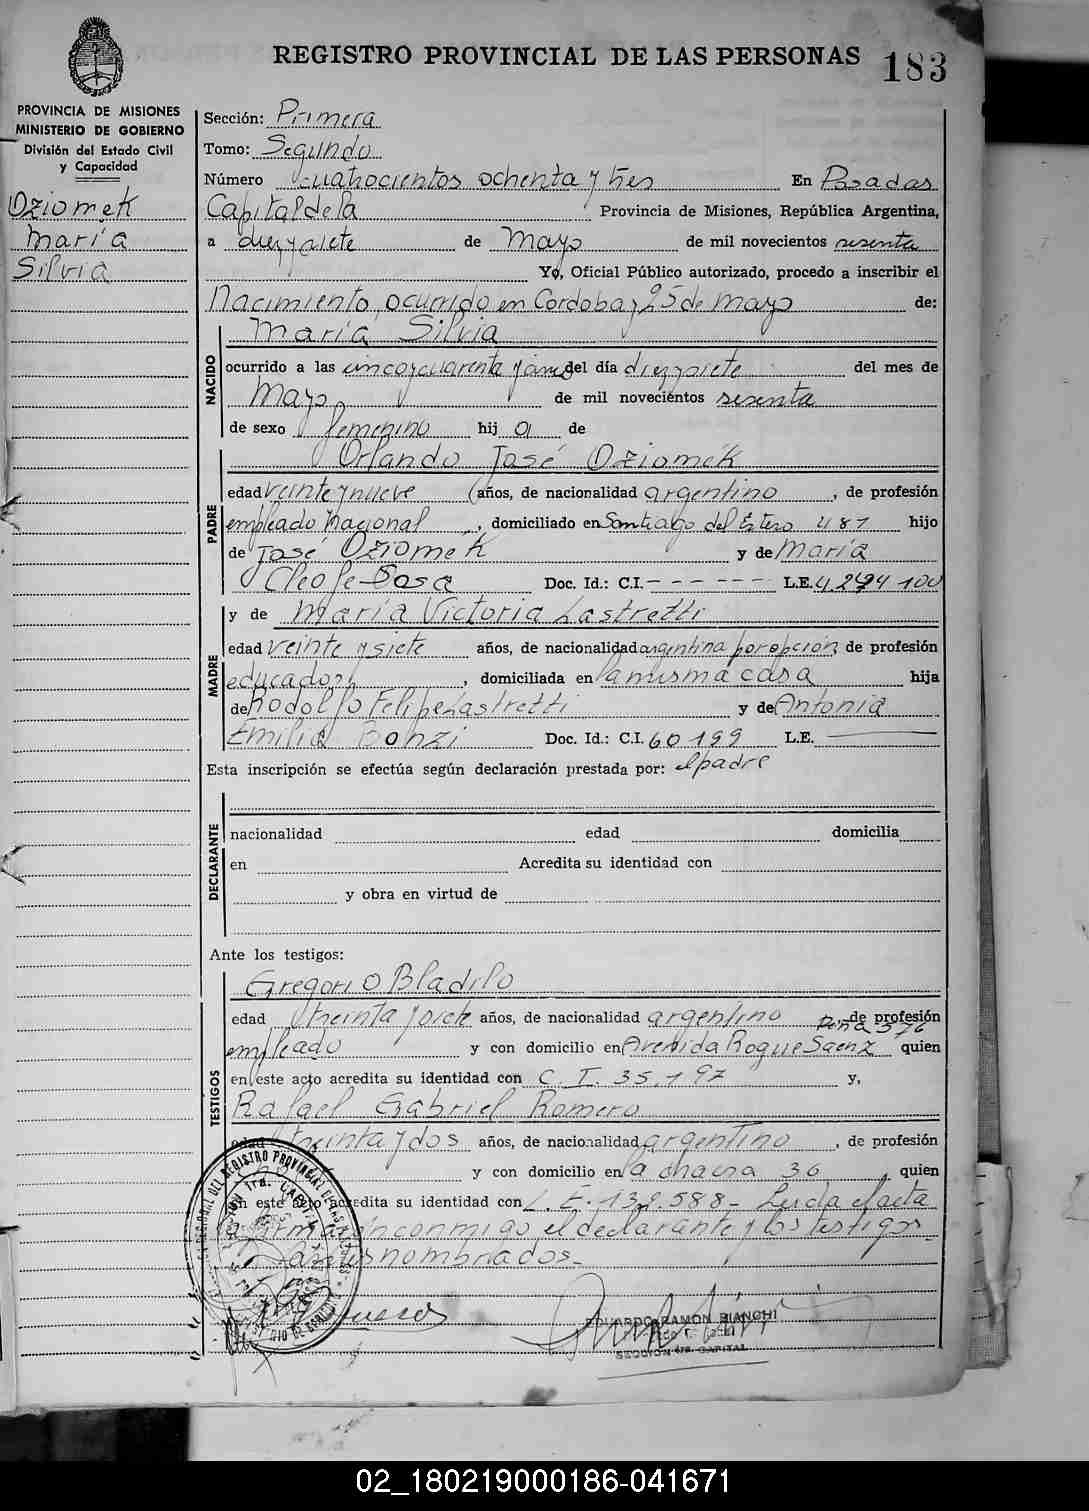 REGISTRO PROVINCIAL DE LAS PERSONAS 183
PROVINCIA DE MISIONES
MINISTERIO DE GOBIERNO
División del Estado Civil
y Capacidad
Oziomek
María
Silvia
Sección: Primera
Tomo: Segundo
Número cuatrocientos ochenta y tres En Posadas
Capital de la Provincia de Misiones, República Argentina,
a diez y siete de Mayo de mil novecientos sesenta
Yo, Oficial Público autorizado, procedo a inscribir el
Nacimiento, ocurrido en Cordoba y 25 de mayo de:
María Silvia
NACIDO
ocurrido a las cinco y cuarenta y cinco del día diez y siete del mes de
Mayo de mil novecientos sesenta
de sexo femenino hij a de
Orlando José Oziomek
PADRE
edad veinte y nueve años, de nacionalidad argentino, de profesión
empleado Nacional, domiciliado en Santiago del Estero 487 hijo
de José Oziomek y de María
Cleofe Sosa Doc. Id.: C.I. - - - - - - - L.E.
y de María Victoria Lastretti
MADRE
edad veinte y siete años, de nacionalidad argentina por opción, de profesión
educadora, domiciliada en la misma casa hija
de Rodolfo Felipe Lastretti y de Antonia
Emilia Bonzi Doc. Id.: C.I. 60199 L.E.
Esta inscripción se efectúa según declaración prestada por: el padre
DECLARANTE
nacionalidad edad domicilia
en Acredita su identidad con
y obra en virtud de
Ante los testigos:
Gregorio Bladilo
TESTIGOS
edad treinta y siete años, de nacionalidad argentino, de profesión
Peña 576
empleado y con domicilio en Avenida Roque Saenz quien
en este acto acredita su identidad con C. I. 35.197 y,
Rafael Gabriel Romero
edad treinta y dos años, de nacionalidad argentino, de profesión
y con domicilio en la chacra 36, quien
en este acto acredita su identidad con L. E. 139.588 - Leida el acta
la firman conmigo, el declarante y los testigos
antes nombrados.-
EDUARDO RAMON BIANCHI
SECCION 1ra. CAPITAL
02_180219000186-041671